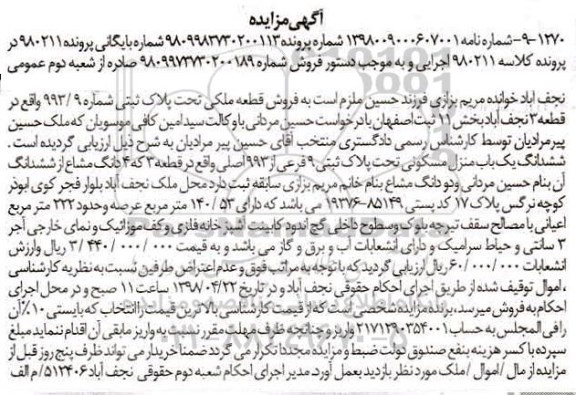 آگهی مزایده
۱۲۷۰-۹-شماره نامه ۱۳۹۸۰۰۹۰۰۰۶۰۷۰۰۱ شماره پرونده ۹۸۰۹۹۸۳۷۳۰۲۰۰۱۱۳ شماره بایگانی پرونده ۹۸۰۲۱۱ در
پرونده کلاسه ۹۸۰۲۱۱ اجرایی و به موجب دستور فروش شماره ۹۸۰۹۹۷۳۷۳۰۲۰۰۱۸۹ صادره از شعبه دوم عمومی
نجف آباد خوانده مریم بزازی فرزند حسین ملزم است به فروش قطعه ملکی تحت پلاک ثبتی شماره ۹۹۳/۹ واقع در
قطعه ۳ نجف آباد بخش ۱۱ ثبت اصفهان با درخواست حسین مردانی با وکالت سید امین کافی موسویان که ملک حسین
پیرمرادیان توسط کارشناس رسمی دادگستری منتخب آقای حسین پیر مرادیان به شرح ذیل ارزیابی گردیده است.
ششدانگ یک باب منزل مسکونی تحت پلاک ثبتی ۹ فرعی از ۹۹۳ اصلی واقع در قطعه ۳ که ۴ دانگ مشاع از ششدانگ
آن بنام حسین مردانی و دو دانگ مشاع بنام خانم مریم بزازی سابقه ثبت دارد محل ملک نجف آباد بلوار فجر کوی ابوذر
کوچه نرگس پلاک ۱۷ کد پستی ۸۵۱۴۹-۱۹۳۷۶ می باشد که دارای ۱۴۰/۵۳ متر مربع عرصه وحدود ۲۲۲ متر مربع
اعیانی با مصالح سقف تیرچه بلوک وسطوح داخلی گچ اندود کابینت آشپزخانه فلزی و کف موزائیک و نمای خارجی آجر
۳ سانتی و حیاط سرامیک و دارای انشعابات آب و برق و گاز می باشد و به قیمت ۳/۴۴۰/۰۰۰/۰۰۰ ریال وارزش
انشعابات ۶۰/۰۰۰/۰۰۰ ریال ارزیابی گردید که با توجه به مراتب فوق و عدم اعتراض طرفین نسبت به نظریه کارشناسی
، اموال توقیف شده از طریق اجرای احکام حقوقی نجف آباد و در تاریخ ۱۳۹۸/۰۴/۲۲ ساعت ۱۱ صبح و در محل اجرای
احکام به فروش میرسد، برنده مزایده شخصی است که از قیمت کارشناسی بالاترین قیمت را انتخاب که بایستی ۱۰٪ آن
را فی المجلس به حساب ۲۱۷۱۲۹۰۳۵۴۰۰۱ واریز و چنانچه ظرف مهلت مقرر نسبت به واریز مابقی آن اقدام ننماید مبلغ
سپرده با کسر هزینه بنفع صندوق دولت ضبط و مزایده مجددا تکرار می گردد ضمنا خریدار می تواند ظرف پنج روز قبل از
مزایده از مال /اموال /ملک مورد نظر بازدید بعمل آورد. مدیر اجرای احکام شعبه دوم حقوقی نجف آباد ۵۱۲۴۰۶/م الف